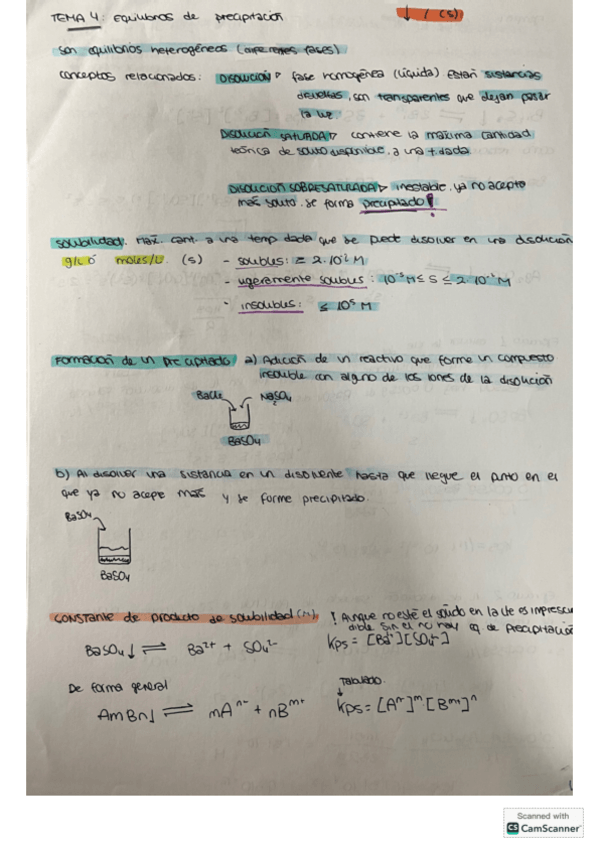 TEMA 4: Equilibrios de precipitación
↓ / (s)
Son equilibrios heterogéneos (diferentes fases)
conceptos relacionados: DISOLUCIÓN ▷ fase homogénea (líquida) Están sustancias
disueltas, son transparentes que dejan pasar
la luz.
DISOLUCIÓN SATURADA ▷ contiene la máxima cantidad
teórica de soluto disponible, a una t. dada.
DISOLUCIÓN SOBRESATURADA ▷ inestable, ya no acepta
más soluto. se forma precipitado!
Solubilidad: Max. cant. a una temp dada que se puede disolver en una disolución
g/L ó moles/L (s) - solubles: ≥ 2·10⁻² M
- ligeramente solubles: 10⁻⁵ M ≤ S ≤ 2·10⁻² M
- insolubles: ≤ 10⁵ M
Formación de un precipitado a) Adición de un reactivo que forme un compuesto
insoluble con alguno de los iones de la disolución
BaCl₂ Na₂SO₄
BaSO₄
b) Al disolver una sustancia en un disolvente hasta que llegue el punto en el
que ya no acepte más y se forme precipitado.
BaSO₄
BaSO₄
CONSTANTE de producto de solubilidad (M). ! Aunque no esté el sólido en la cte es imprescin
dible sin el no hay eq de precipitación
BaSO₄↓ ⇌ Ba²⁺ + SO₄²⁻ Kps = [Ba²⁺][SO₄²⁻]
De forma general Tabulado.
AmBn↓ ⇌ mAⁿ⁻ + nBᵐ⁺ Kps = [Aⁿ⁻]ᵐ·[Bᵐ⁺]ⁿ
Scanned with
CS CamScanner